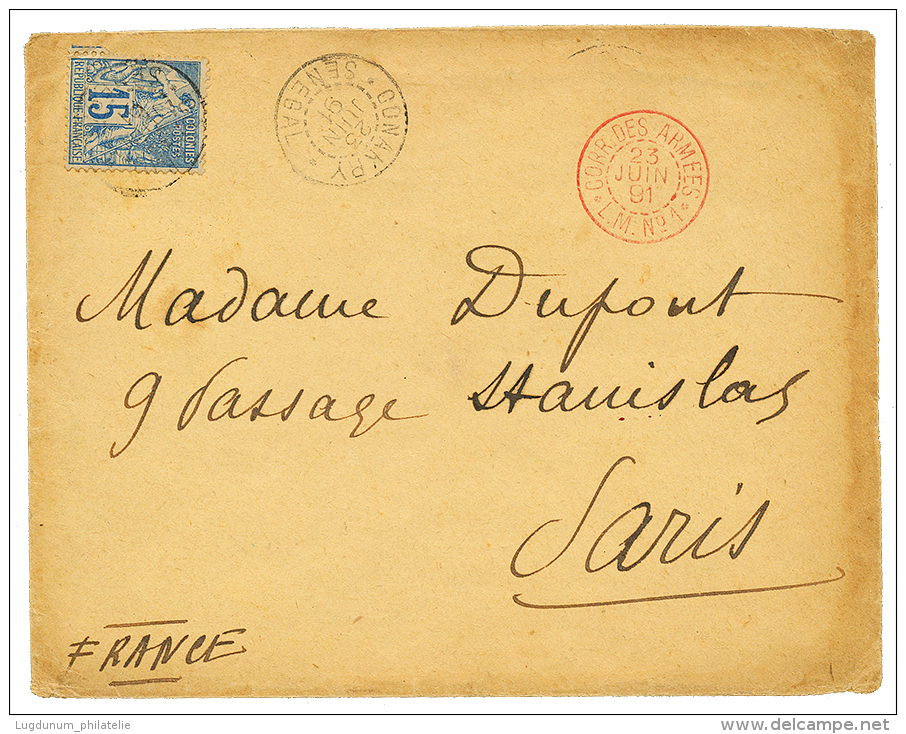 15
COLONIES
POSTES
REPUBLIQUE FRANÇAISE
CONAKRY
23
JUIN
91
SENEGAL
CORR. DES ARMEES
23
JUIN
91
L.M. No 1
Madame Dupont
9 Passage Stanislas
Paris
FRANCE
Lugdunum_philatelie
www.delcampe.net